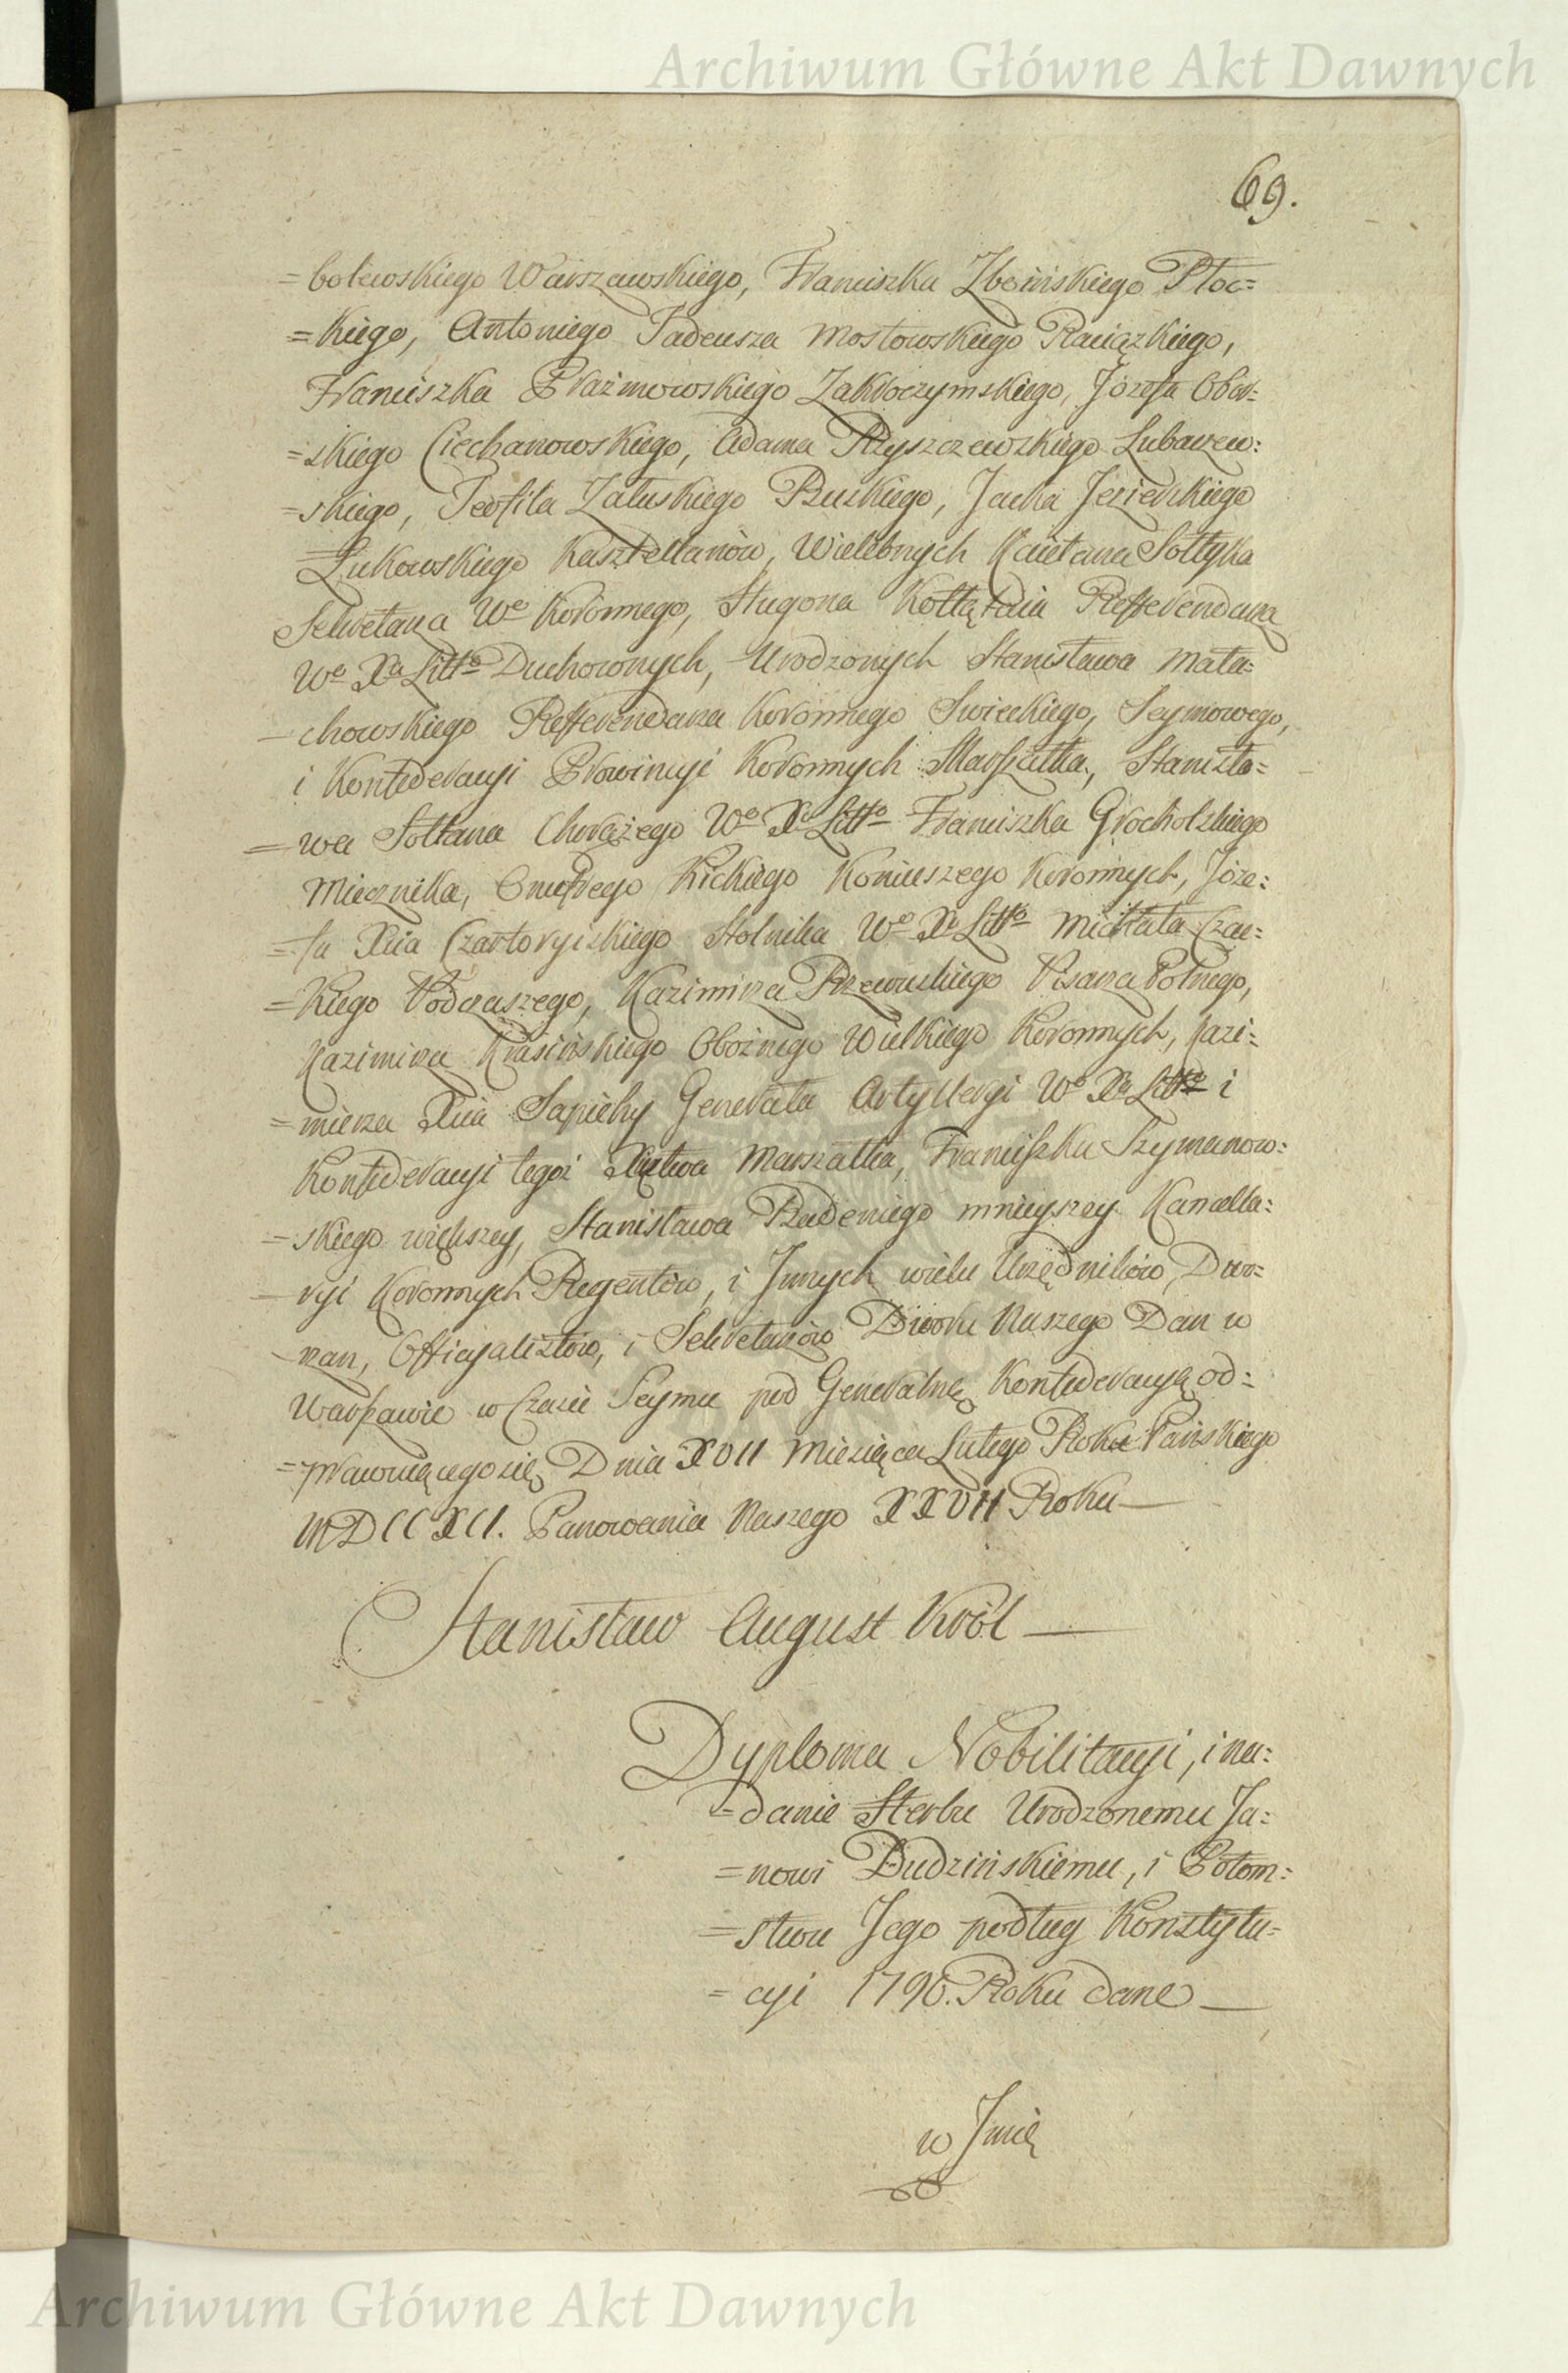 Archiwum Główne Akt Dawnych
69.
=bolewskiego Warszawskiego, Franciszka Zboińskiego Płoc=
=kiego, Antoniego Tadeusza Mostowskiego Raciązkiego,
Franciszka Prażmowskiego Zakroczymskiego, Józefa
=skiego Ciechanowskiego, Adama Rzyszczewskiego Lubaczew:
=skiego, Teofila Załuskiego Buskiego, Jacka Jezierskiego
Łukowskiego Kasztellanów, Wielebnych Kaietana Sołtyka
Sekretarza Wo Koronnego, Hugona Kołłątaia Refferendarza
Wo Xa Litto Duchownych, Urodzonych Stanisława Mała=
chowskiego Refferendarza Koronnego Swieckiego, Seymowego,
i Konfederacyi Prowincyi Koronnych Marszałka, Stanisła=
=wa Sołtana Chorążego Wo Xa Litto Franciszka Grocholskiego
Miecznika, Onufrego Kickiego Koniuszego Koronnych, Józe=
=fa Xcia Czartoryiskiego Stolnika Wo Xa Litto Michała Czac=
=kiego Podczaszego, Kazimirza Rzewuskiego Pisarza Polnego,
Kazimirza Krasińskiego Oboźnego Wielkiego Koronnych, Kazi=
=mierza Xcia Sapiehy Generała Artylleryi Wo Xa Litto i
Konfederacyi tegoż Xięstwa Marszałka, Franciszka Szymanow=
=skiego większey, Stanisława Badeniego mnieyszey Kancella=
ryi Koronnych Regentów, i Innych wielu Urzędników, Dwo=
rzan, Officyalistów, i Sekretarzów Dworu Naszego Dan w
Warszawie w Czasie Seymu pod Generalną Konfederacyą od=
=prawuiącego się Dnia XVII Miesiąca Lutego Roku Pańskiego
MDCCXCI. Panowania Naszego XXVII Roku—
Stanisław August Król—
Dyploma Nobilitacyi, i na=
=danie Herbu Urodzonemu Ja=
=nowi Budzińskiemu, i Potom=
=stwu Jego podług Konstytu=
=cyi 1790. Roku dane—
w Imię
Archiwum Główne Akt Dawnych